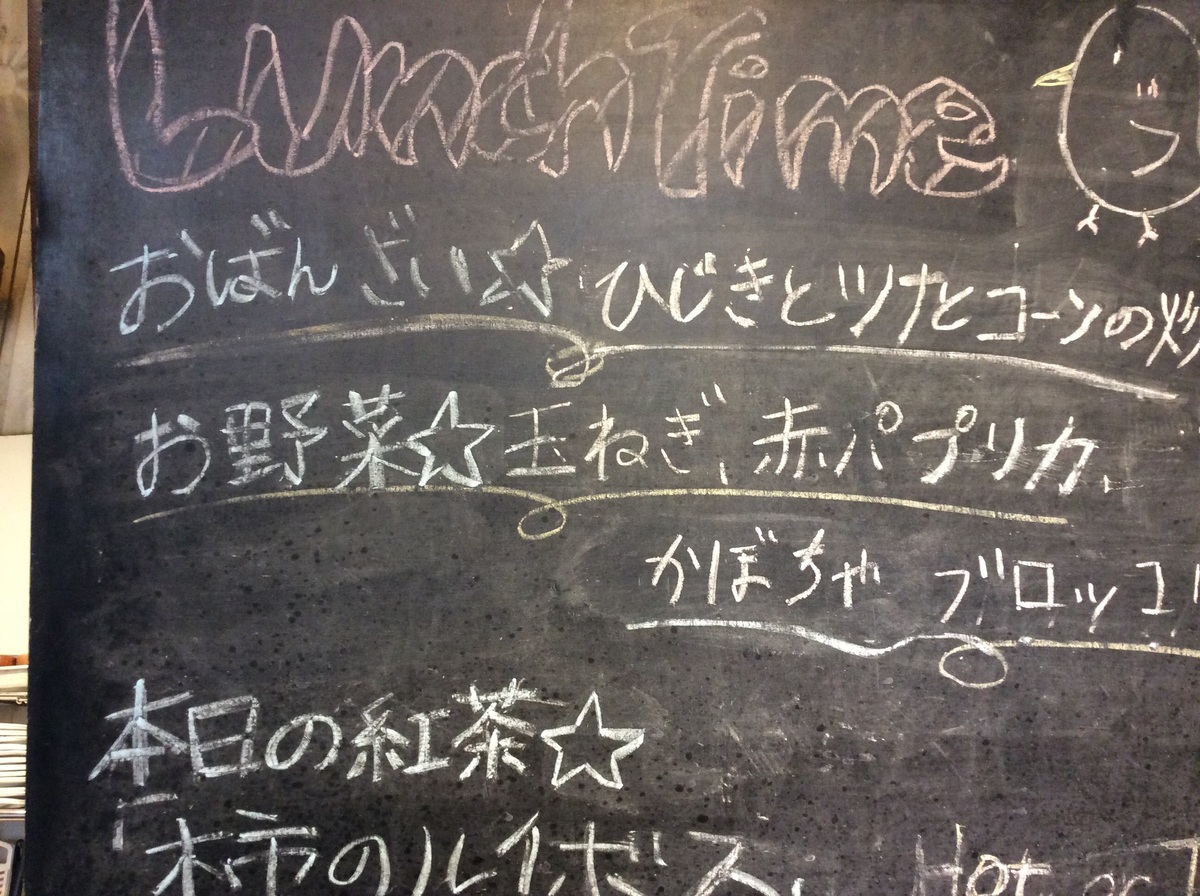 Lunch Time
おばんざい☆ひじきとツナとコーンの炒
お野菜☆玉ねぎ、赤パプリカ、
かぼちゃ ブロッコリ
本日の紅茶☆
「柿のルイボス Hot or